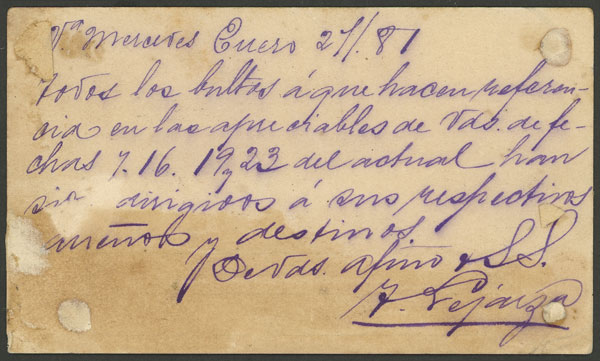 Va. Mercedes Enero 27/87
todos los bultos á que hacen referen-
cia en las apreciables de Vds. de fe-
chas 7. 16. 19 y 23 del actual han
sido dirigidos á sus respectivos
dueños y destinos
De Vds. afmo y SS.